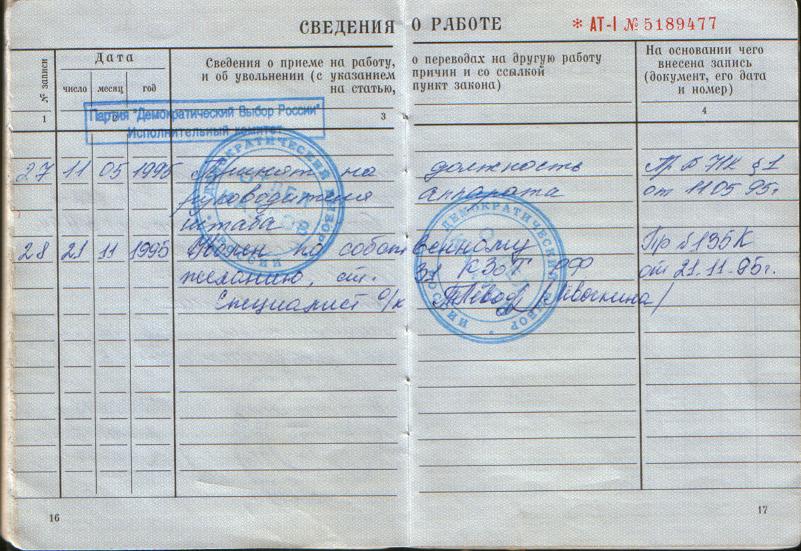 СВЕДЕНИЯ О РАБОТЕ
* АТ-I № 5189477
№ записи
Дата
число
месяц
год
Сведения о приеме на работу, о переводах на другую работу
и об увольнении (с указанием причин и со ссылкой
на статью, пункт закона)
На основании чего
внесена запись
(документ, его дата
и номер)
1
3
4
Партия "Демократический Выбор России"
Исполнительный комитет
27 11 05 1995 Принят на должность
руководителя аппарата
штаба
от 11 05 95г.
28 21 11 1995 Уволен по собственному
желанию, ст. 31 КЗоТ РФ
Специалист о/к
Пр 135К
от 21.11.95г.
ДЕМОКРАТИЧЕСКИЙ ВЫБОР
ДЕМОКРАТИЧЕСКИЙ ВЫБОР
16
17